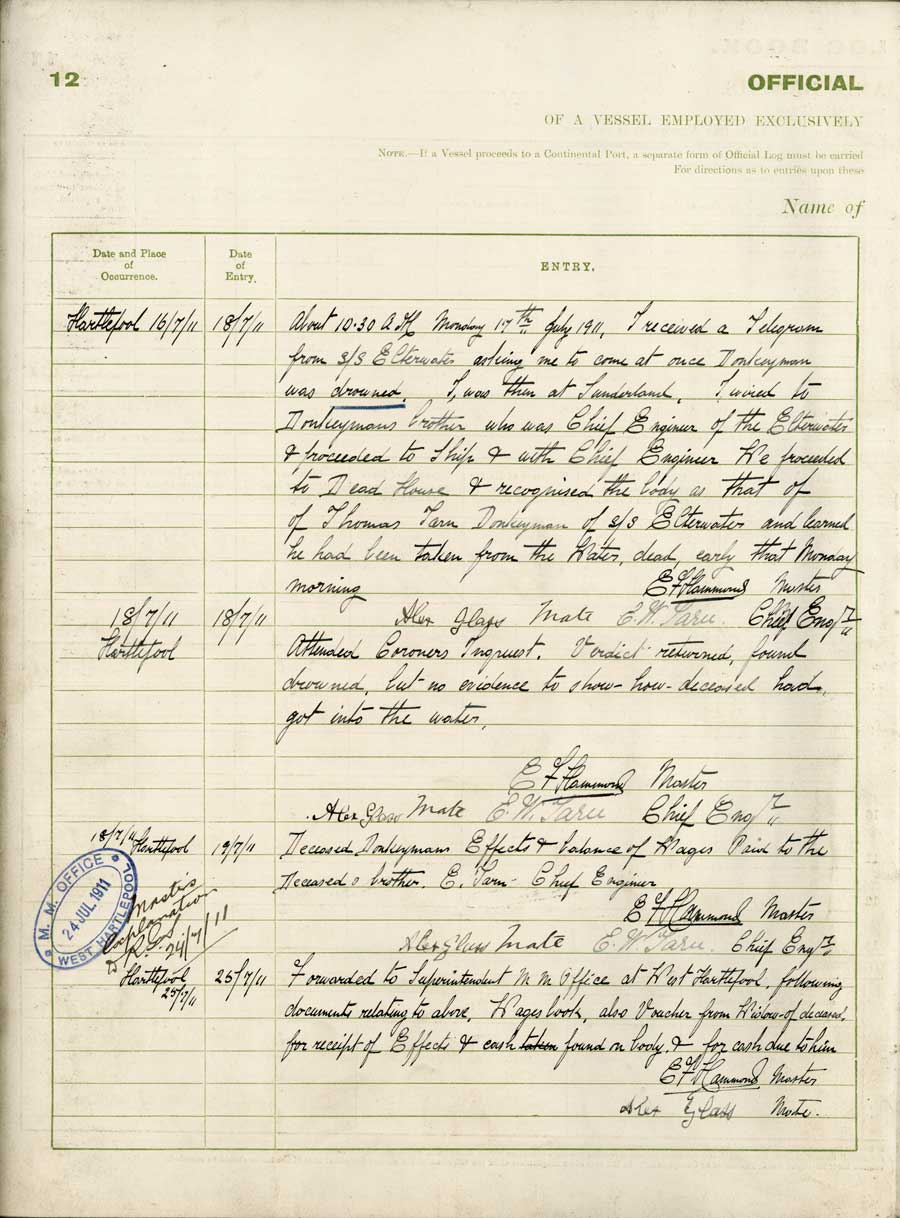 12
OFFICIAL
OF A VESSEL EMPLOYED EXCLUSIVELY
NOTE.—If a Vessel proceeds to a Continental Port, a separate form of Official Log must be carried
For directions as to entries upon these
Name of
Date and Place of Occurrence.
Date of Entry.
ENTRY.
Hartlepool 16/7/11 18/7/11 About 10.30 A M Monday 17th July 1911, I received a Telegram
from s/s Elterwater asking me to come at once Donkeyman
was drowned. I, was then at Sunderland, I wired to
Donkeymans brother who was Chief Engineer of the Elterwater
& proceeded to Ship & with Chief Engineer We proceeded
to Dead House & recognised the body as that of
of Thomas Tarn Donkeyman of s/s Elterwater and learned
he had been taken from the Water, dead, early that Monday
morning E F Hammond Master
18/7/11 18/7/11 Alex Glass Mate E. W. Tarn. Chief Engr
Hartlepool Attended Coroners Inquest. Verdict returned, found
drowned, but no evidence to show how deceased had
got into the water,
E F Hammond Master
Alex Glass Mate E. W. Tarn Chief Engr
18/7/11 Hartlepool 19/7/11 Deceased Donkeymans Effects & balance of Wages Paid to the
Deceased s brother. E. Tarn - Chief Engineer
E F Hammond Master
Alex Glass Mate E. W. Tarn. Chief Engr
M. M. OFFICE
24 JUL 1911
WEST HARTLEPOOL
Explanation
24/7/11
Hartlepool 25/7/11 25/7/11 Forwarded to Superintendent M M Office at West Hartlepool, following
documents relating to above, Wages book, also Voucher from Widow of deceased,
for receipt of Effects & cash taken found on body, & for cash due to him
E F Hammond Master
Alex Glass Mate.